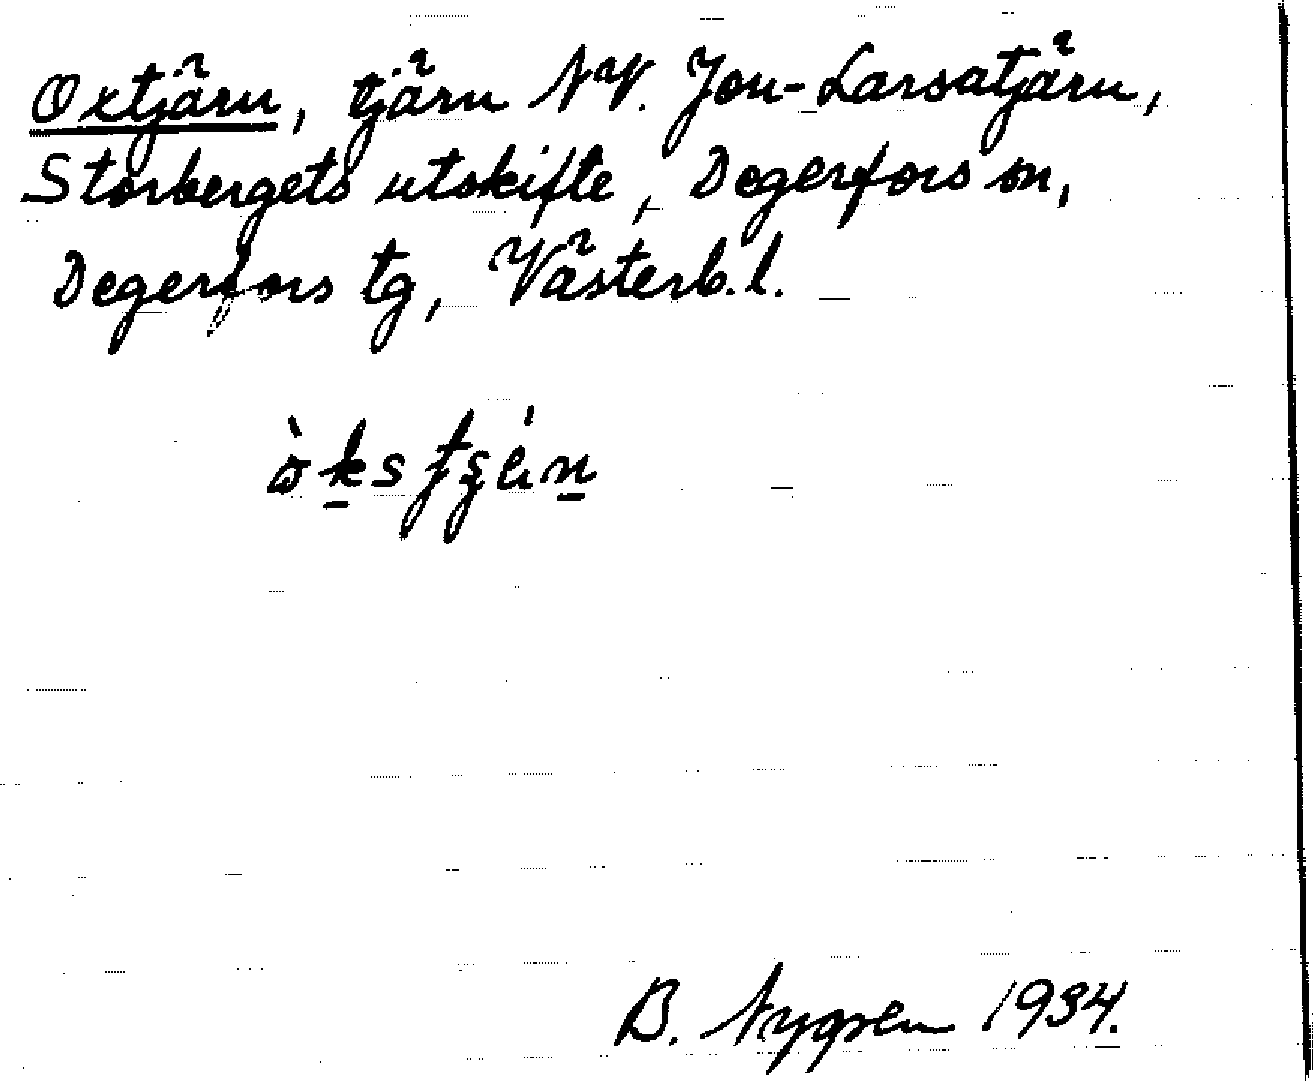 Oxtjärn, tjärn NV. Jon-Larsatjärn,
Storbergets utskifte, Degerfors sn,
Degerfors tg, Västerb. l.
B. Nygren 1934.